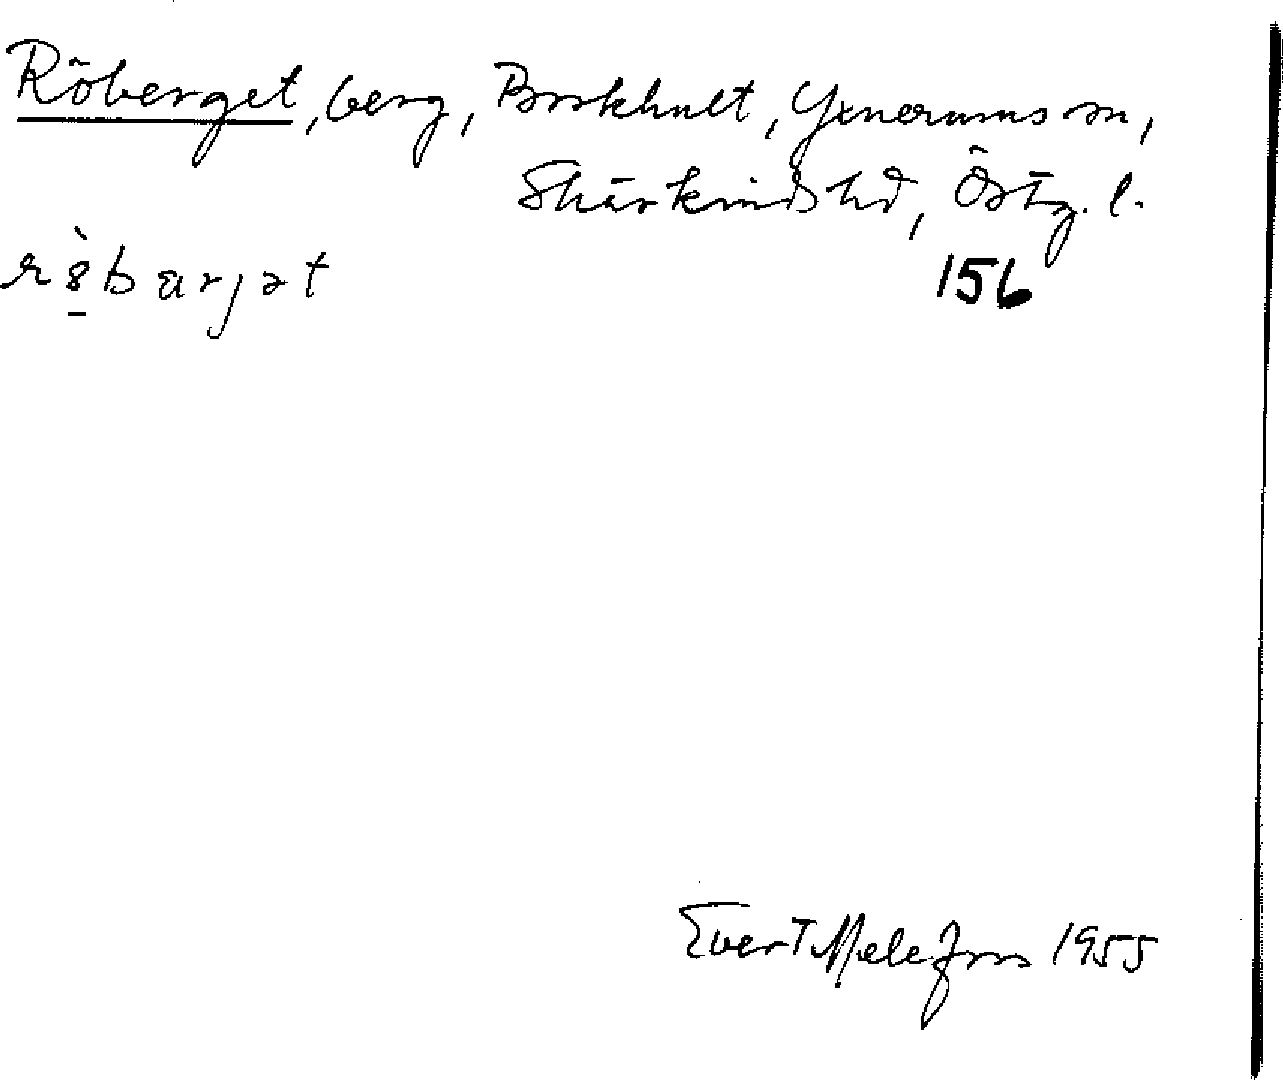 Röberget, berg, Borkhult, Yxnerums sn,
Skärkinds hd, Östg. l.
156
Evert Melefors 1955